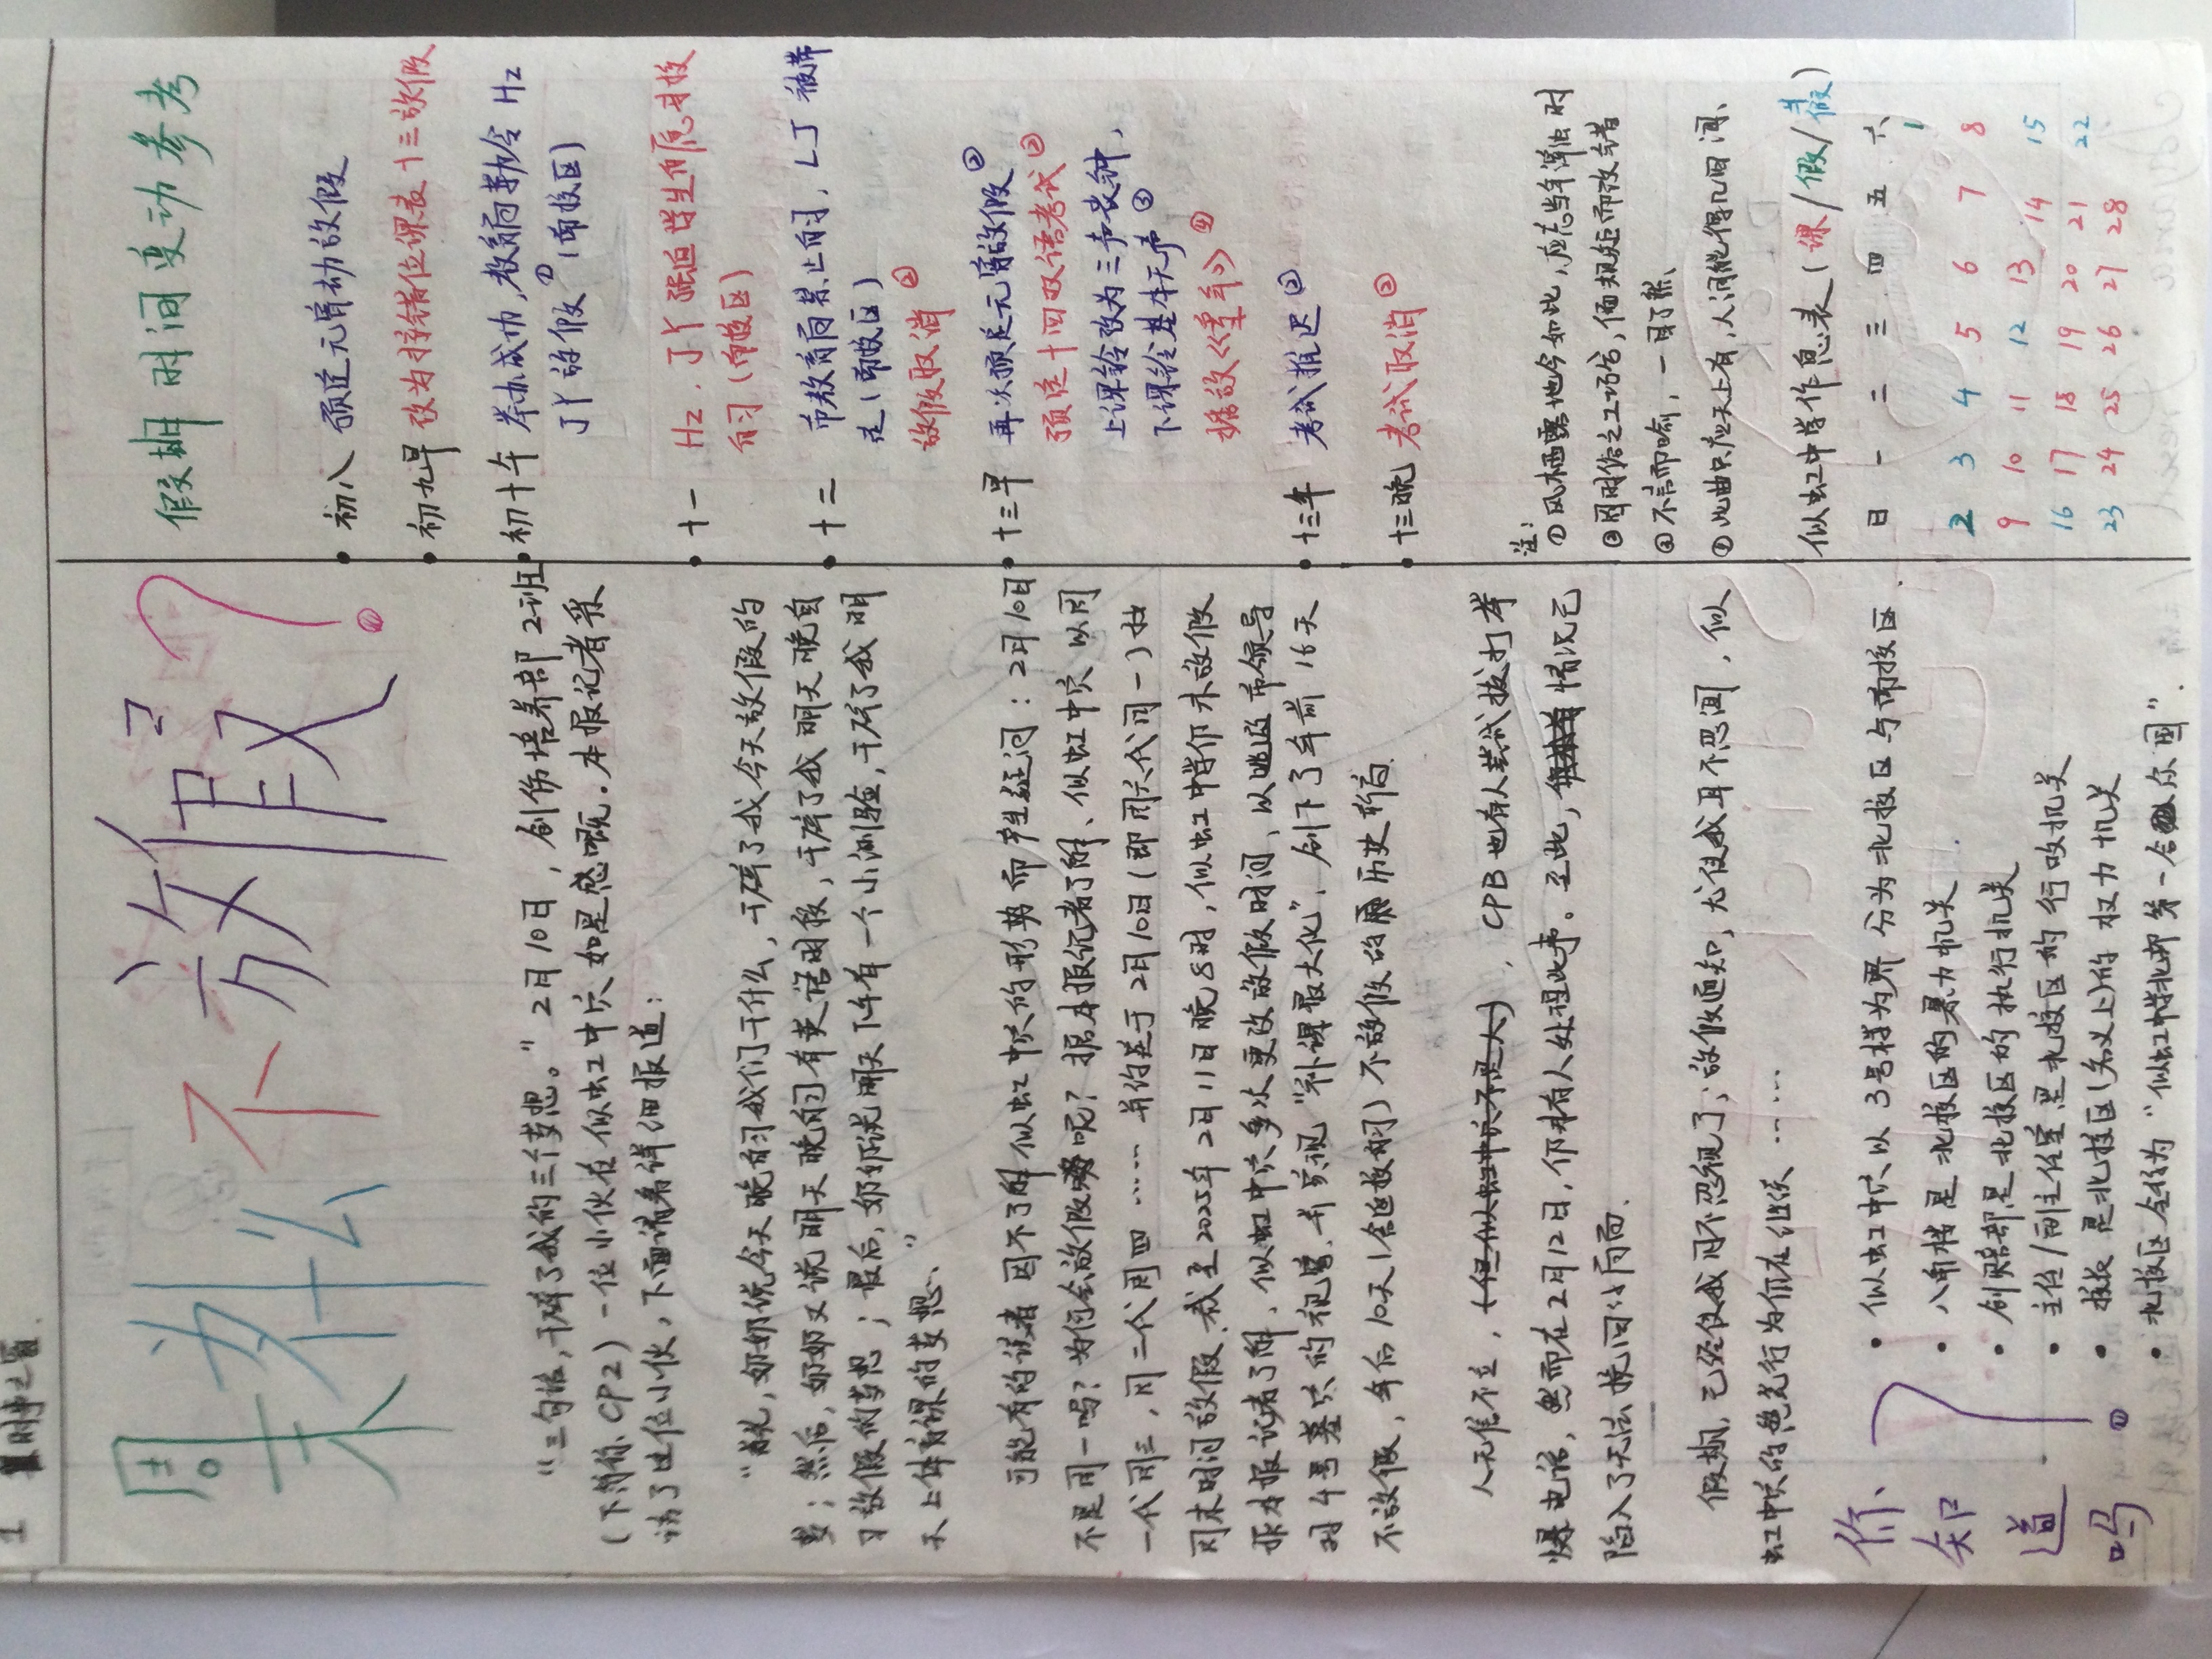 1 时事之窗
周末为什么不放假?
“三句话,干碎了我的三个梦想。”2月10日,创伤培养部2班
(下简称CP2)一位小伙在似虹中穴如是感慨.本报记者采
访了这位小伙,下面请看详细报道:
“首先,奶奶说今天晚自习我们干什么,干碎了我今天放假的
梦;然后,奶奶又说明天晚自习有英语时段,干碎了我明天晚自
习放假的梦想;最后,奶奶说明天下午有一个小测验,干碎了我明
天上体育课的梦想.”
可能有的读者因不了解似虹中穴的形势而产生疑问:2月10日
不是周一吗?为何会放假呢?据本报记者了解、似虹中穴以周
一代周三,周二代周四……并约定于2月10日(即周六代周一)按
周末时间放假.截至2025年2月11日晚8时,似虹中学仍未放假
据本报记者了解,似虹中穴多次更改放假时间,以逃避市领导
对4号墓穴的视察.并实现“补课最大化”,创下了年前16天
不放假,年后10天(含返校自习)不放假的历史新高.
人无信不立,(但似虹中穴不是人),CPB也有人尝试拨打举
爆电话,然而在2月12日,仍未有人处理此事。至此,情况已
陷入了无法挽回的局面.
假期,已经使我目不忍视了;放假通知,尤使我耳不忍闻,似
虹中穴的行为仍在继续……
你知道吗?
• 似虹中穴以3号楼为界分为北校区与南校区.
• 八角楼是北校区的暴力机关.
• 创赔部是北校区的执行机关
• 主任/副主任室是北校区的行政机关
• 校长是北校区(名义上)的权力机关
• 北校区全称为“似虹中学北部第一合众国”.
假期时间变动参考
初八 预定元宵动放假
初九早 改为按错位课表十三放假
初十午 举办成功,教育局勒令Hz
JY放假①(南校区)
十一 Hz.JY强迫学生自愿返校
自习(南校区)
十二 市教育局禁止自习,LJ被带
走(南校区)
放假取消②
十三早 再次预定元宵放假②
预定十四双语考试②
上课铃改为三声丧钟,
下课铃基本无声③
播放《童年》④
十三午 考试推迟②
十三晚 考试取消②
注:
①风栖露地今如此,应忘当年浑浊时
②固时俗之工巧兮,偭规矩而改错
③不言而喻,一目了然、
④此曲只应天上有,人间能得几回闻、
似虹中学作息表(课/假/半假)
日 一 二 三 四 五 六
1
2 3 4 5 6 7 8
9 10 11 12 13 14 15
16 17 18 19 20 21 22
23 24 25 26 27 28